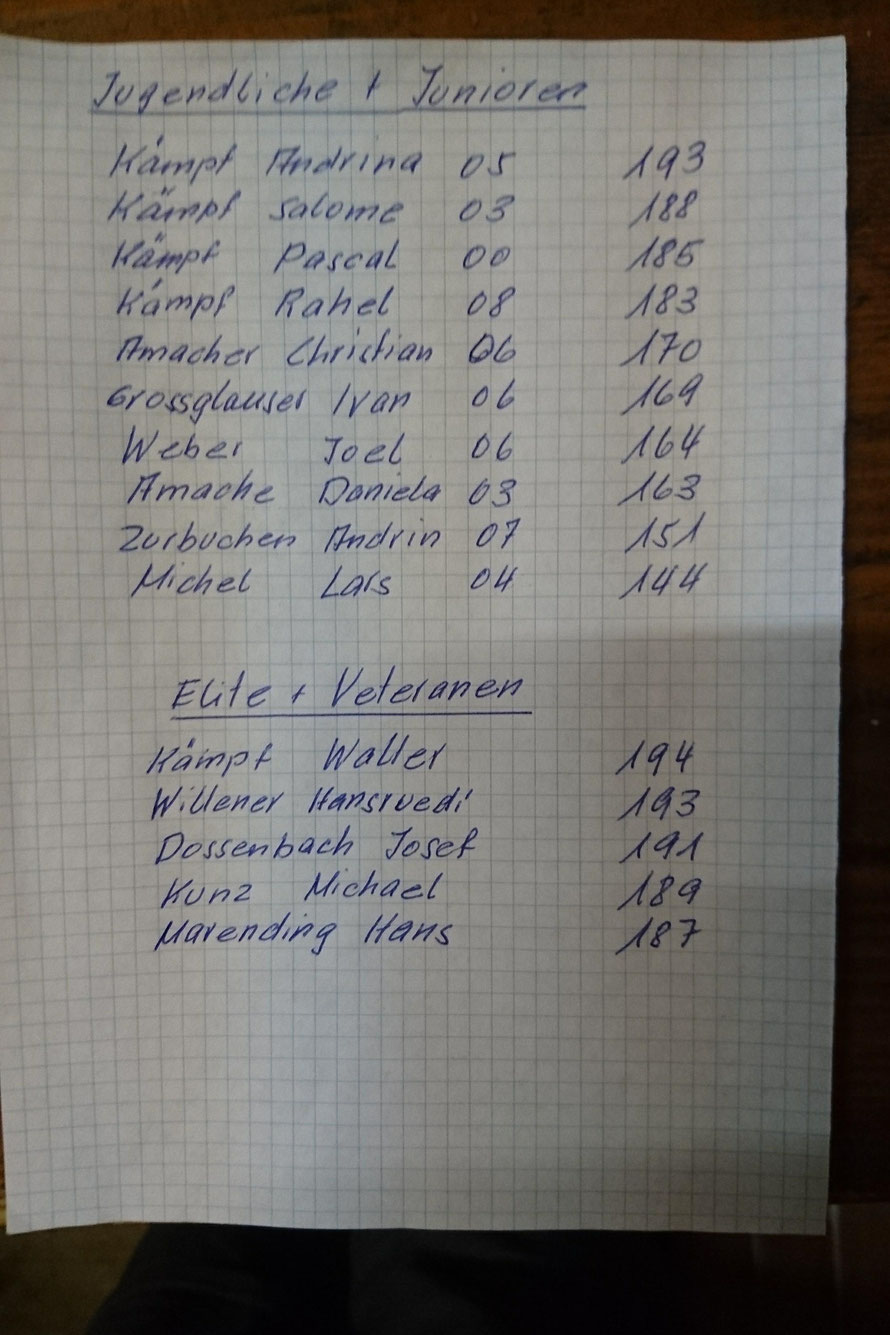 Jugendliche + Junioren
Kämpf Andrina 05 193
Kämpf Salome 03 188
Kämpf Pascal 00 185
Kämpf Rahel 08 183
Amacher Christian 06 170
Grossglauser Ivan 06 169
Weber Joel 06 164
Amache Daniela 03 163
Zurbuchen Andrin 07 151
Michel Lars 04 144
Elite + Veteranen
Kämpf Walter 194
Willener Hansruedi 193
Dossenbach Josef 191
Kunz Michael 189
Marending Hans 187